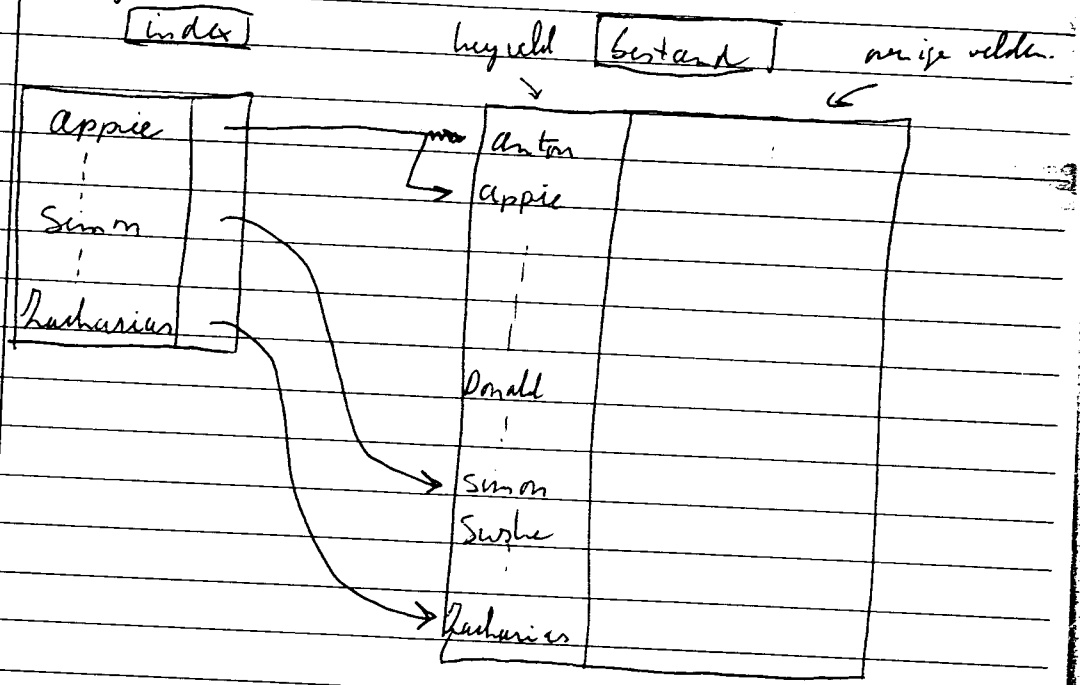 index
keyveld
bestand
overige velden.
appie
Simon
Zacharias
anton
appie
Donald
Simon
Suske
Zacharias